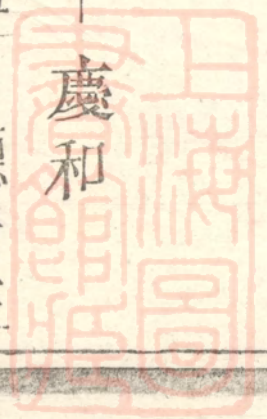 慶和
上海圖
書館藏